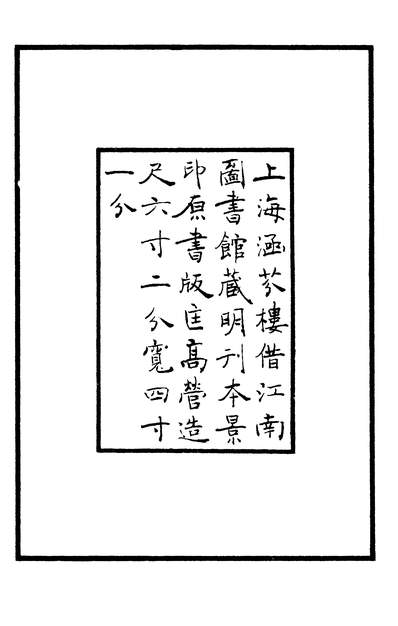 上海涵芬樓借江南
圖書館藏明刊本景
印原書版匡高營造
尺六寸二分寬四寸
一分